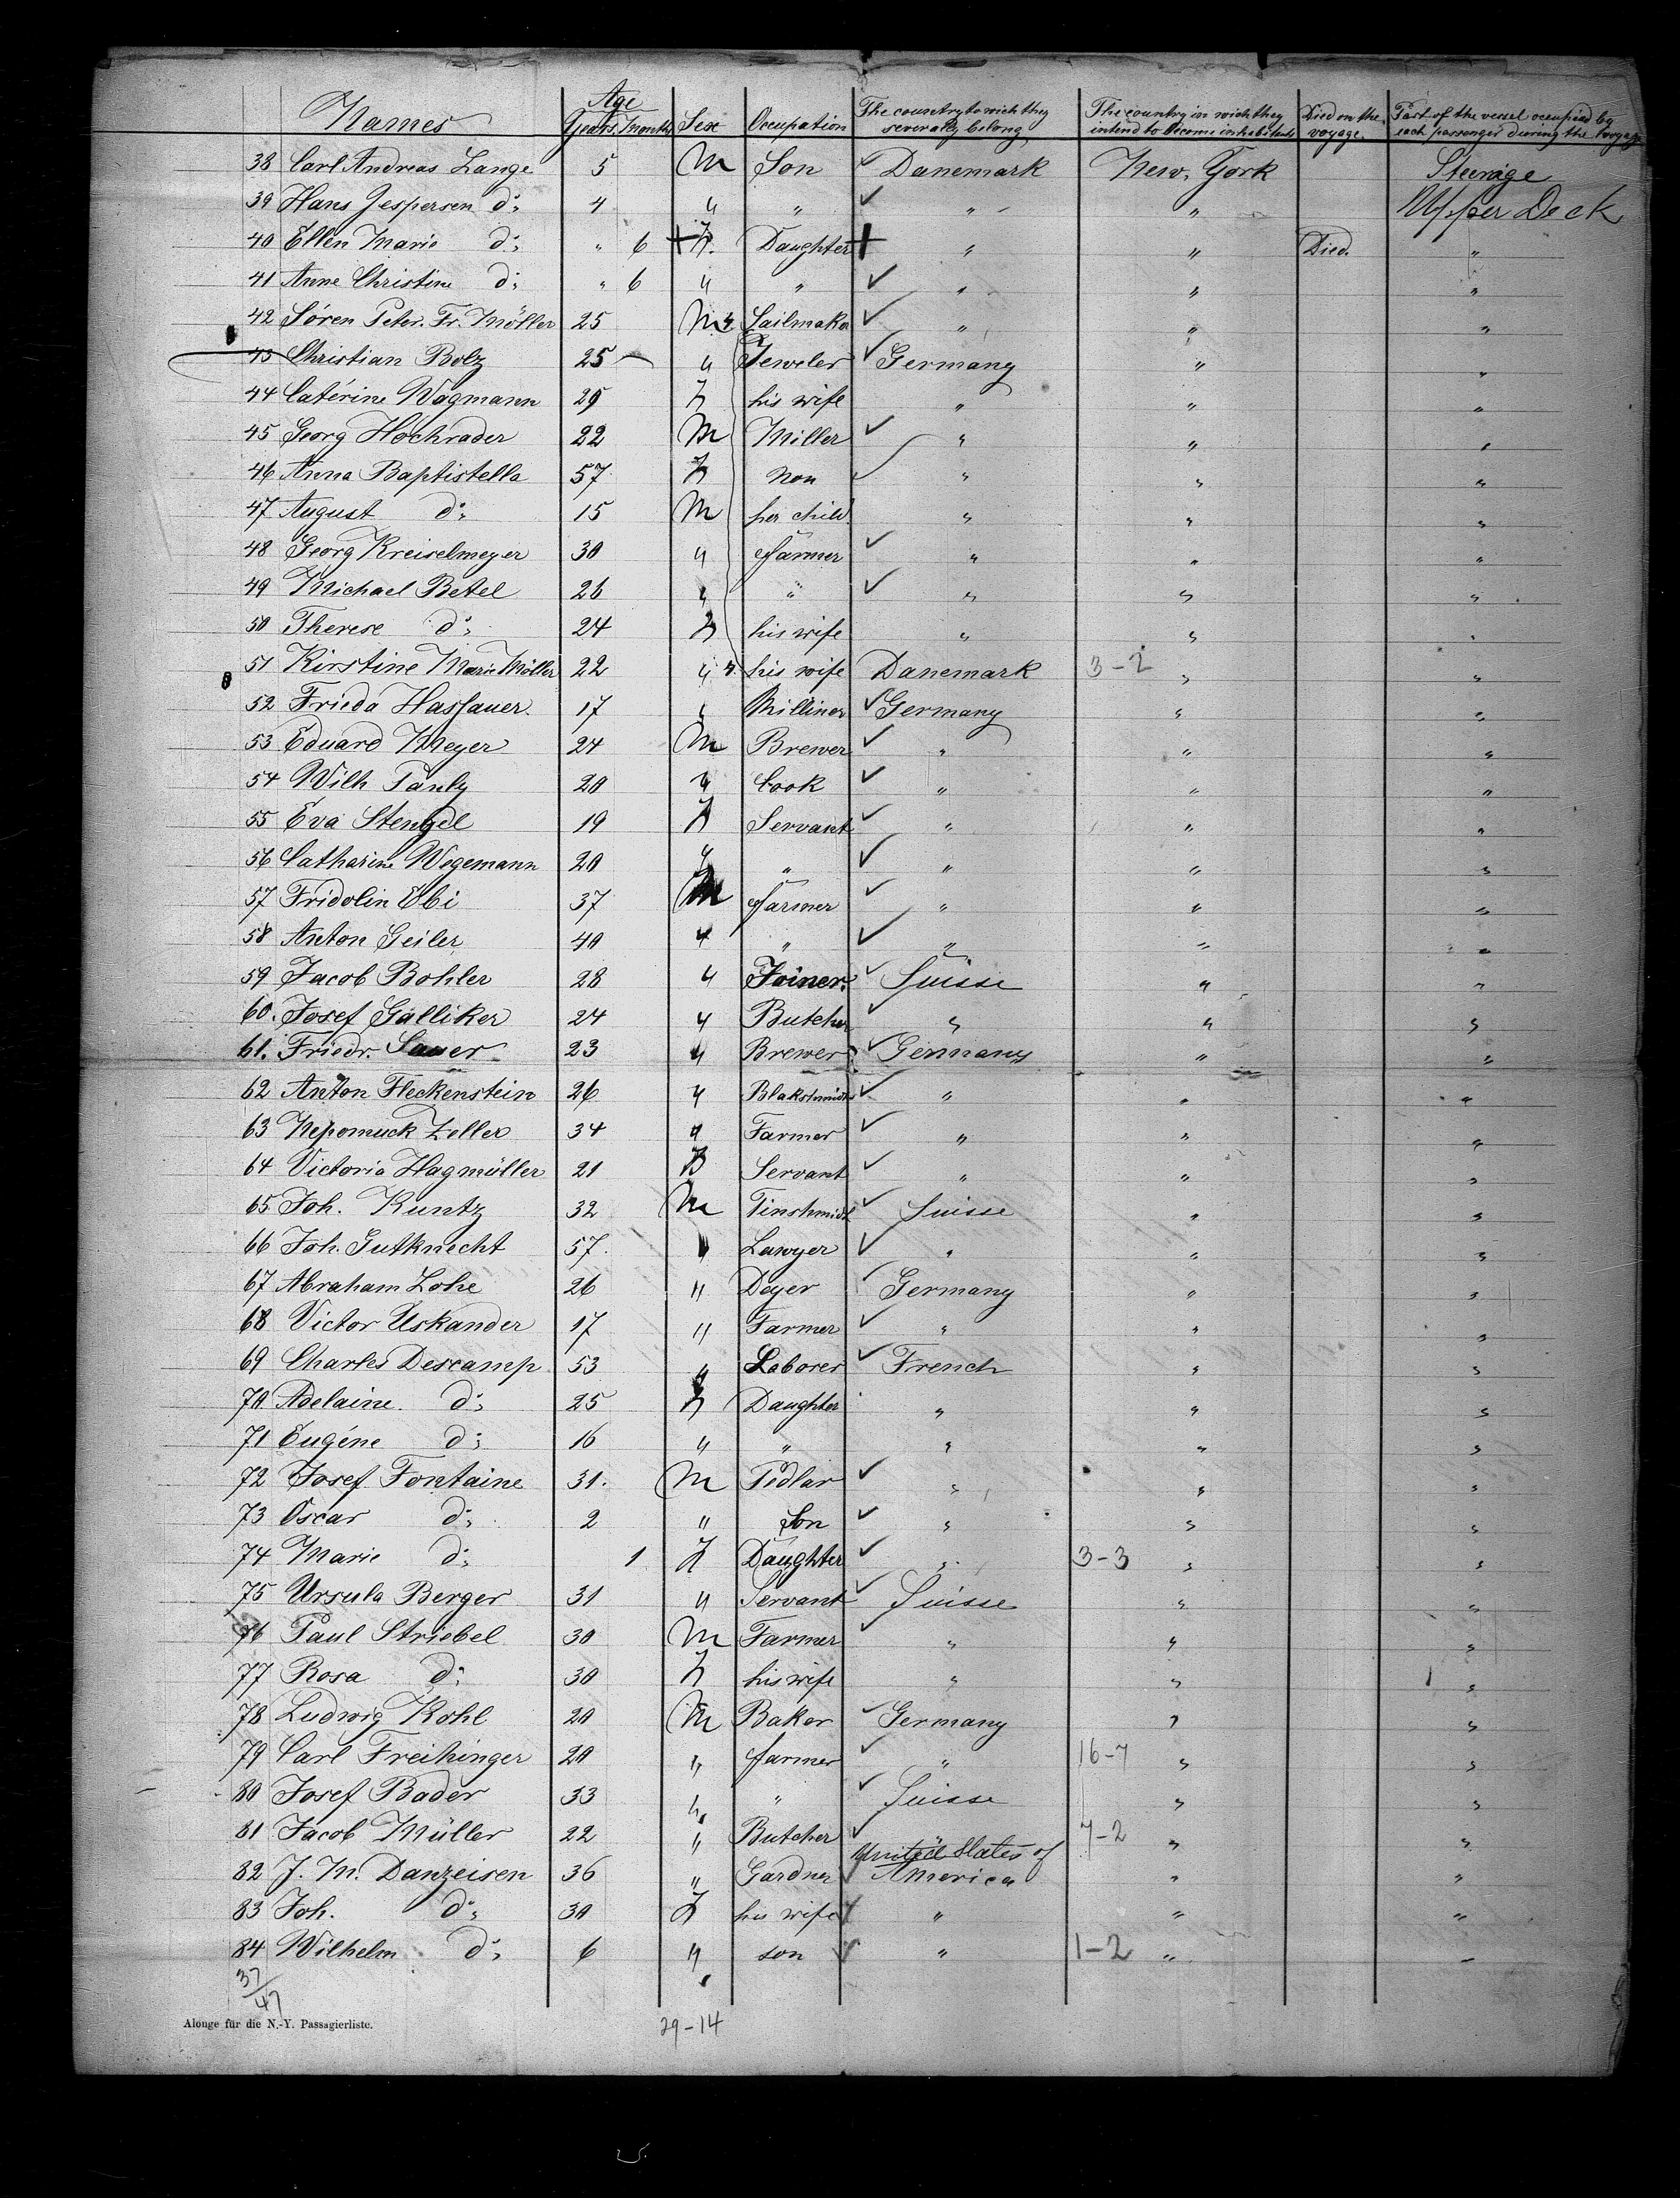 Names Age Years. Months Sex Occupation The country to wich they severally belong The country in wich they intend to become inhabitants Died on the voyage. Part of the vessel occupied by each passenger during the voyage
38 Carl Andreas Lange 5 M Son ✓ Danemark New. York Steerage
39 Hans Jespersen d:o 4 " " ✓ " " Upper Deck
40 Ellen Marie d:o " 6 + F. Daughter + " " Died. "
41 Anne Christine d:o " 6 " " ✓ " " "
42 Søren Peter. Fr. Möller 25 M Sailmaker ✓ " " "
43 Christian Bolz 25 " Jeweler ✓ Germany " "
44 Catérine Wagmann 29 F his wife " " "
45 Georg Hochrader 22 M Miller ✓ " " "
46 Anna Baptistella 57 F non ✓ " " "
47 August d:o 15 M her child " " "
48 Georg Kreiselmeyer 30 " farmer ✓ " " "
49 Michael Betel 26 " " ✓ " " "
50 Therese d:o 24 F his wife " " "
51 Kirstine Marie Möller 22 " his wife Danemark 3-2 " "
52 Frieda Hassauer. 17 " Milliner ✓ Germany " "
53 Eduard Meyer 24 M Brewer ✓ " " "
54 Wilh Pauly 20 " Cook ✓ " " "
55 Eva Stengel 19 F Servant ✓ " " "
56 Catharine Wegemann 20 " " ✓ " " "
57 Fridolin Ebi 37 M farmer ✓ " " "
58 Anton Geiler 40 " " ✓ " " "
59 Jacob Bohler 28 " Joiner. ✓ Suisse " "
60. Josef Galliker 24 " Butcher ✓ " " "
61. Friedr. Sauer 23 " Brewer ✓ Germany " "
62 Anton Fleckenstein 26 " Blakshmidt ✓ " " "
63 Nepomuck Zeller 34 " Farmer ✓ " " "
64 Victoria Hagmüller 21 F Servant ✓ " " "
65 Joh. Kuntz 32 M Tinshmidt ✓ Suisse " "
66 Joh. Gutknecht 57. " Lawyer ✓ " " "
67 Abraham Lohe 26 " Deyer ✓ Germany " "
68 Victor Uskander 17 " Farmer ✓ " " "
69 Charles Descamp 53 " Laborer ✓ French " "
70 Adelaine. d:o 25 F Daughter " " "
71 Eugéne d:o 16 " " " " "
72 Josef Fontaine 31. M Pedlar ✓ " " "
73 Oscar d:o 2 " Son ✓ " " "
74 Marie d:o 1 F Daughter ✓ " 3-3 " "
75 Ursula Berger 31 " Servant ✓ Suisse " "
76 Paul Striebel 30 M Farmer ✓ " " "
77 Rosa d:o 30 F his wife " " "
78 Ludwig Kohl 20 M Baker ✓ Germany " "
79 Carl Freihinger 20 " farmer ✓ " 16-7 " "
80 Josef Bader 33 " " ✓ Suisse " "
81 Jacob Müller 22 " Butcher ✓ 7-2 " "
82 J. M. Danzeisen 36 " Gardner ✓ United States of America " "
83 Joh. d:o 30 F his wife " " "
84 Wilhelm d:o 6 " son " 1-2 " "
37/47
Alonge für die N.-Y. Passagierliste.
29-14